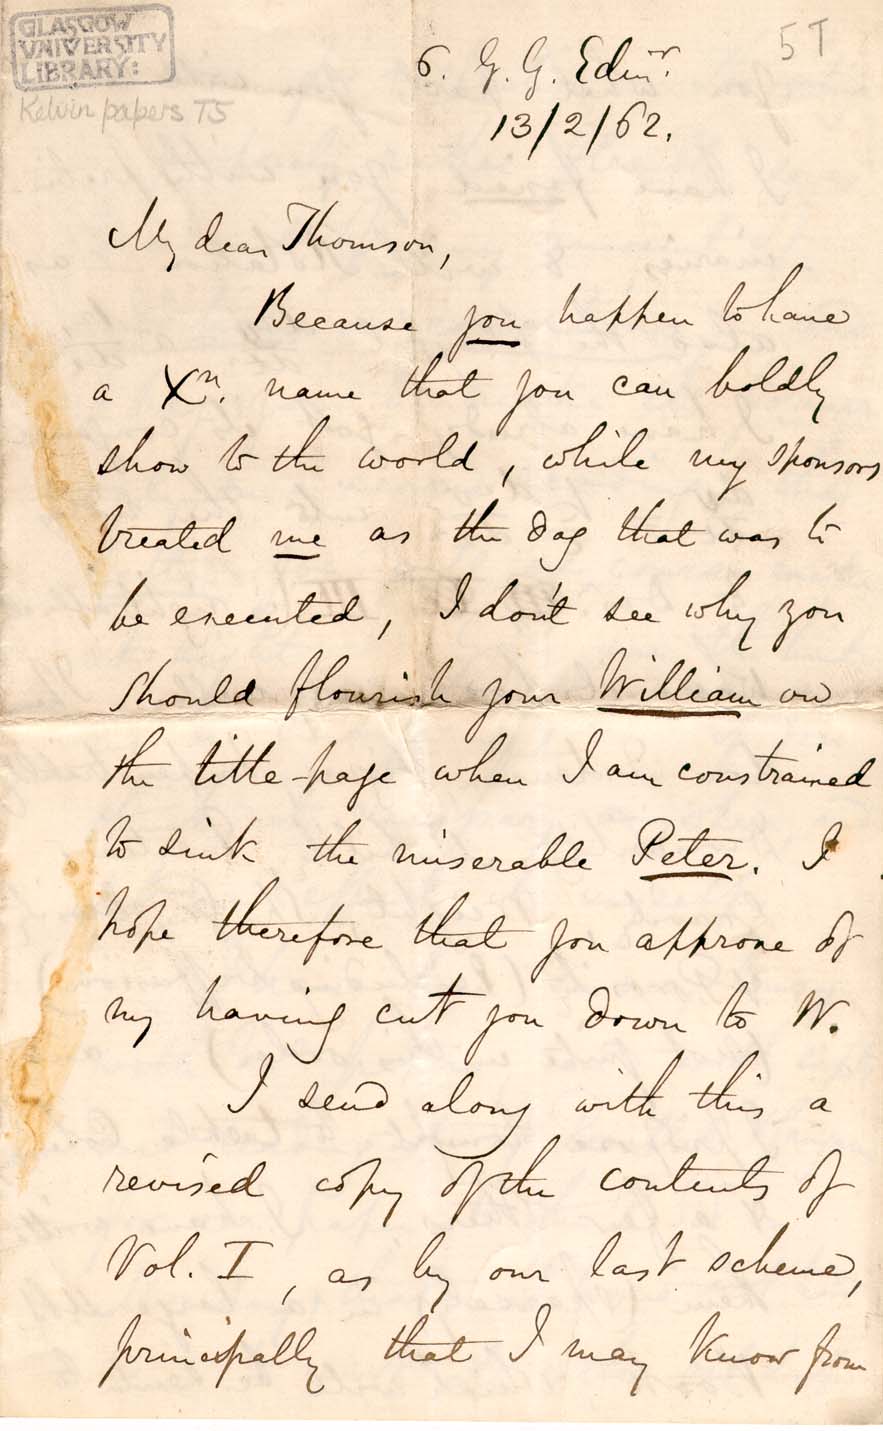 GLASGOW
UNIVERSITY
LIBRARY:
Kelvin papers T5
5T
6. G. G. Edinr.
13/2/62.
My dear Thomson,
Because you happen to have
a Xn. name that you can boldly
show to the world, while my sponsors
treated me as the dog that was to
be executed, I don't see why you
should flourish your William on
the title-page when I am constrained
to sink the miserable Peter. I
hope therefore that you approve of
my having cut you down to W.
I send along with this a
revised copy of the contents of
Vol. I, as by our last scheme,
principally that I may know from